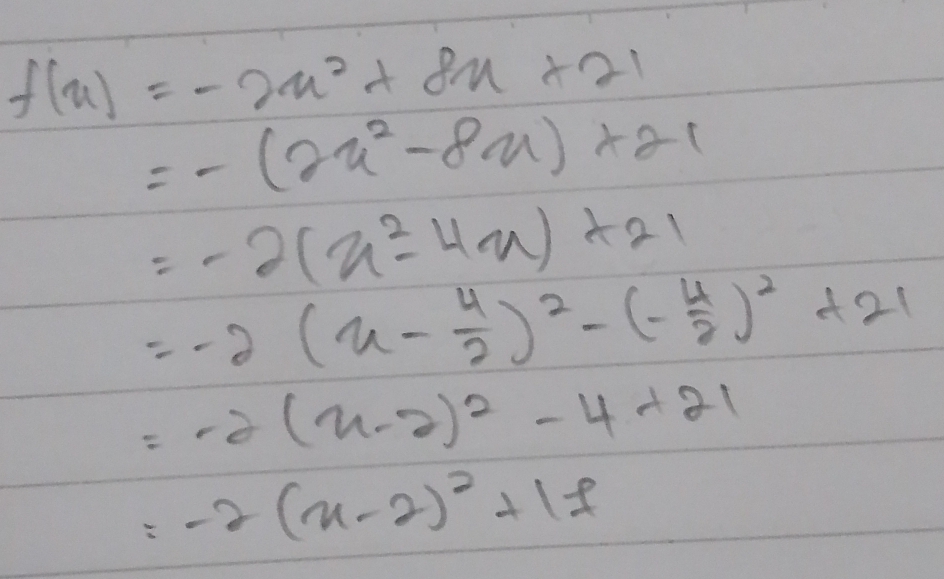 f(x) = -2x² + 8x + 21
= - (2x² - 8x) + 21
= -2(x² - 4x) + 21
= -2 (x - 4/2)² - (-4/2)² + 21
= -2 (x - 2)² - 4 + 21
= -2 (x - 2)² + 17